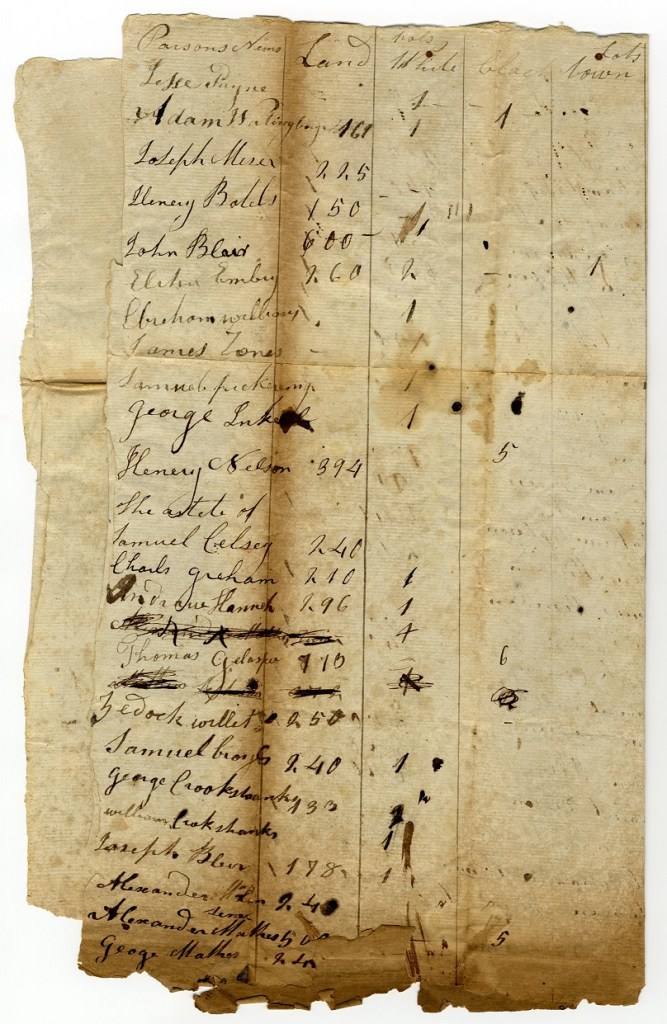 Parsons Nems Land pols White black lots town
Jesse Payne 1
Adam 161 1 1
Joseph Meser 225
Henery Bolds 150 1
John Blair 600 1
Elihu Embry 260 2 1
Ebreham williams 1
James Jones 1
Samuel 1
george 1
Henery Nelson 394 5
the astete of
Samuel Celsey 240
Charls greham 210 1
Andrew Hanneh 296 1
4
Thomas 110 6
Zedock willits 250
Samuel broyls 240 1
george Crookshanks 133
william Crokshanks 1
Joseph Bleir 178 1
Alexander 24
senr
Alexander Mathes 500 5
George Mathes